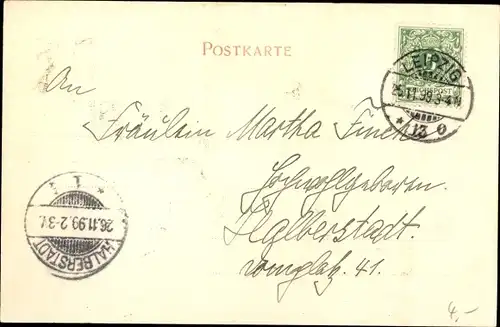 POSTKARTE
LEIPZIG
25.11.99.3-4 N
* 13 o
An
Fräulein Martha Finck
Hochwohlgeboren.
Halberstadt.
41.
* 1
26.11.99.2-3V.
HALBERSTADT
4,-